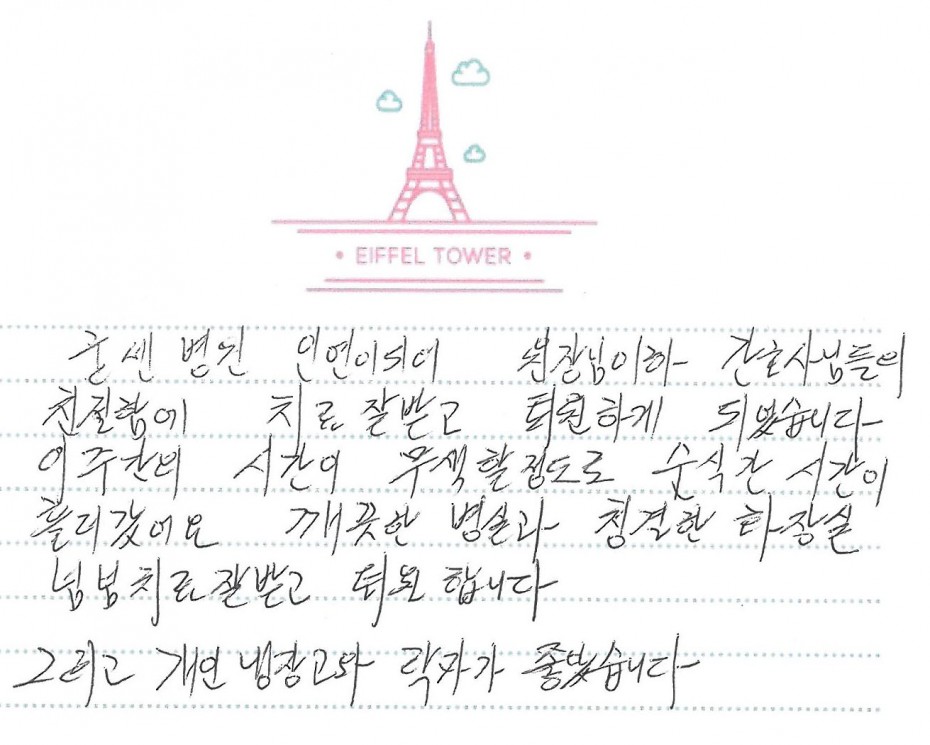 • EIFFEL TOWER •
굳센 병원 인연이되어 원장님이하 간호사님들의
친절함에 치료 잘받고 퇴원하게 되었습니다
이주간의 시간이 무색할정도로 순식간 시간이
흘러갔어요 깨끗한 병실과 청결한 화장실
넘넘 치료잘받고 퇴원 합니다
그리고 개인 냉장고와 탁자가 좋았습니다